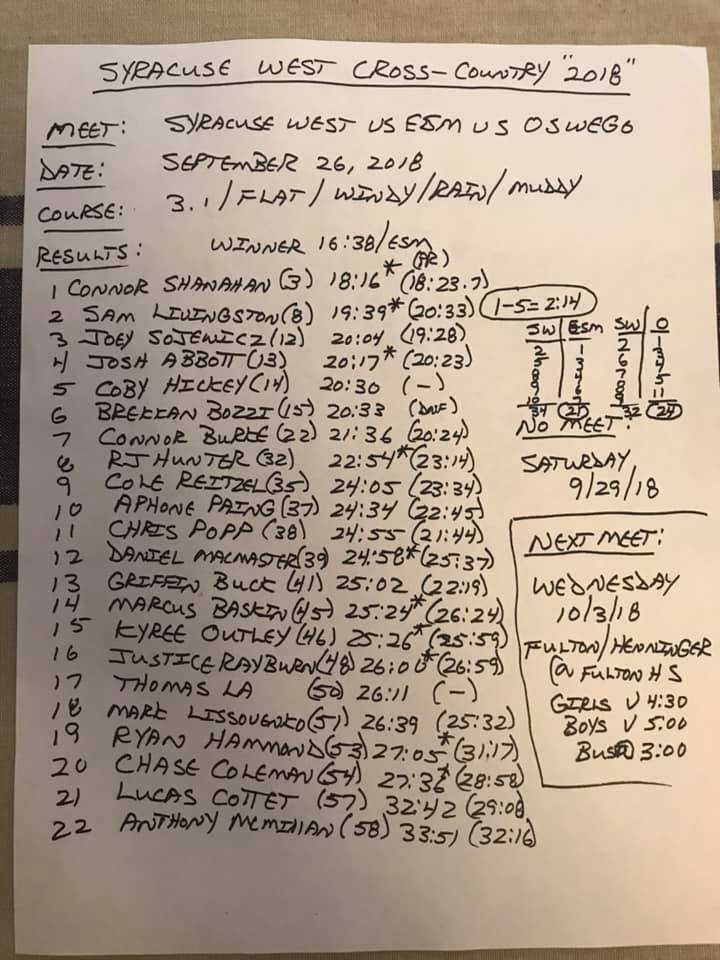 SYRACUSE WEST CROSS-COUNTRY "2018"
MEET: SYRACUSE WEST US ESM US OSWEGO
DATE: SEPTEMBER 26, 2018
COURSE: 3.1/FLAT/WINDY/RAIN/MUDDY
RESULTS: WINNER 16:38/ESM
(PR)
1 CONNOR SHANAHAN (3) 18:16* (18:23.7)
2 SAM LIVINGSTON (8) 19:39* (20:33)
3 JOEY SOJEWICZ (12) 20:04 (19:28)
4 JOSH ABBOTT (13) 20:17* (20:23)
5 COBY HICKEY (14) 20:30 (-)
6 BREKIAN BOZZI (15) 20:33 (DNF)
7 CONNOR BURKE (22) 21:36 (20:24)
8 RJ HUNTER (32) 22:54* (23:14)
9 COLE REITZEL (35) 24:05 (23:34)
10 APHONE PAING (37) 24:34 (22:45)
11 CHRIS POPP (38) 24:55 (21:44)
12 DANIEL MACMASTER (39) 24:58* (25:37)
13 GRIFFIN BUCK (41) 25:02 (22:19)
14 MARCUS BASKIN (45) 25:24* (26:24)
15 KYREE OUTLEY (46) 25:26* (25:59)
16 JUSTICE RAYBURN (48) 26:00* (26:59)
17 THOMAS LA (50) 26:11 (-)
18 MARK (51) 26:39 (25:32)
19 RYAN HAMMOND (53) 27:05* (31:17)
20 CHASE COLEMAN (54) 27:36* (28:58)
21 LUCAS COTTET (57) 32:42 (29:08
22 ANTHONY (58) 33:51 (32:16)
1-5=2:14
SW ESM SW O
2 1 2 1
5 3 6 3
8 4 7 4
9 6 8 5
10 7 9 11
34 21 32 24
NO MEET:
SATURDAY
9/29/18
NEXT MEET:
WEDNESDAY
10/3/18
FULTON/HENNINGER
@ FULTON HS
GIRLS V 4:30
BOYS V 5:00
BUS@ 3:00